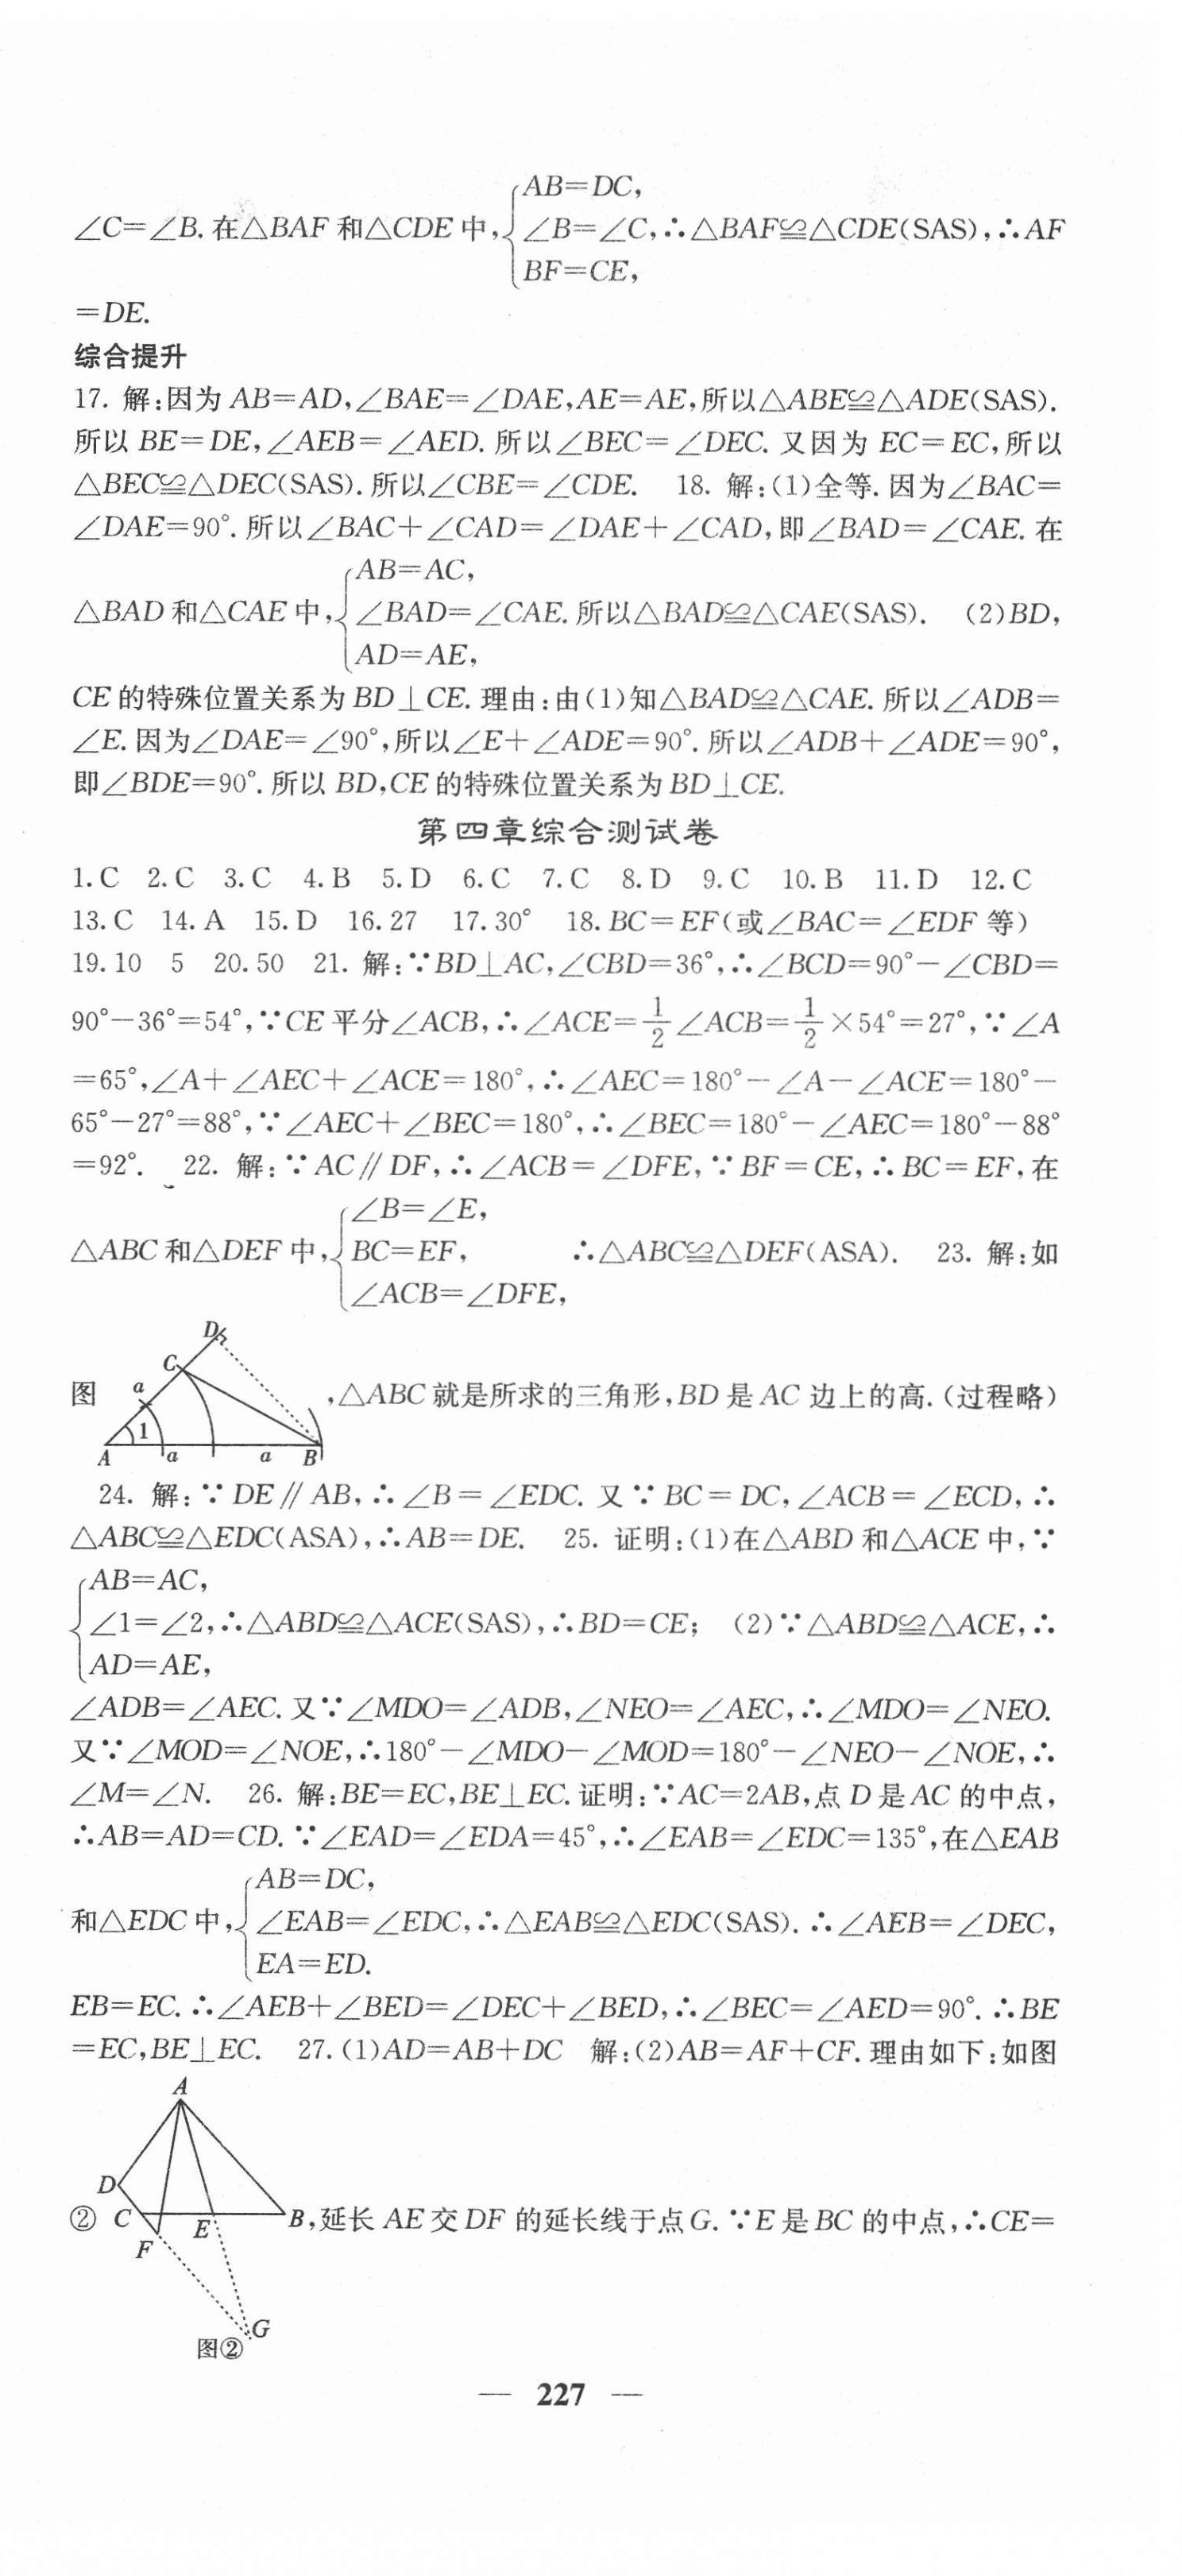 AB=DC,
∠C=∠B.在△BAF和△CDE中,∠B=∠C,∴△BAF≌△CDE(SAS),∴AF
BF=CE,
=DE.
综合提升
17. 解:因为AB=AD,∠BAE=∠DAE,AE=AE,所以△ABE≌△ADE(SAS).
所以BE=DE,∠AEB=∠AED.所以∠BEC=∠DEC.又因为EC=EC,所以
△BEC≌△DEC(SAS).所以∠CBE=∠CDE. 18. 解:(1)全等.因为∠BAC=
∠DAE=90°.所以∠BAC+∠CAD=∠DAE+∠CAD,即∠BAD=∠CAE.在
AB=AC,
△BAD和△CAE中,∠BAD=∠CAE.所以△BAD≌△CAE(SAS). (2)BD,
AD=AE,
CE的特殊位置关系为BD⊥CE.理由:由(1)知△BAD≌△CAE.所以∠ADB=
∠E.因为∠DAE=∠90°,所以∠E+∠ADE=90°.所以∠ADB+∠ADE=90°,
即∠BDE=90°.所以BD,CE的特殊位置关系为BD⊥CE.
第四章综合测试卷
1.C 2.C 3.C 4.B 5.D 6.C 7.C 8.D 9.C 10.B 11.D 12.C
13.C 14.A 15.D 16.27 17.30° 18.BC=EF(或∠BAC=∠EDF等)
19.10 5 20.50 21. 解:∵BD⊥AC,∠CBD=36°,∴∠BCD=90°-∠CBD=
90°-36°=54°,∵CE平分∠ACB,∴∠ACE=1/2∠ACB=1/2×54°=27°,∵∠A
=65°,∠A+∠AEC+∠ACE=180°,∴∠AEC=180°-∠A-∠ACE=180°-
65°-27°=88°,∵∠AEC+∠BEC=180°,∴∠BEC=180°-∠AEC=180°-88°
=92°. 22. 解:∵AC∥DF,∴∠ACB=∠DFE,∵BF=CE,∴BC=EF,在
∠B=∠E,
△ABC和△DEF中,BC=EF, ∴△ABC≌△DEF(ASA). 23. 解:如
∠ACB=∠DFE,
D
C
图 a ,△ABC就是所求的三角形,BD是AC边上的高.(过程略)
1
A a a B
24. 解:∵DE∥AB,∴∠B=∠EDC.又∵BC=DC,∠ACB=∠ECD,∴
△ABC≌△EDC(ASA),∴AB=DE. 25. 证明:(1)在△ABD和△ACE中,∵
AB=AC,
∠1=∠2,∴△ABD≌△ACE(SAS),∴BD=CE; (2)∵△ABD≌△ACE,∴
AD=AE,
∠ADB=∠AEC.又∵∠MDO=∠ADB,∠NEO=∠AEC,∴∠MDO=∠NEO.
又∵∠MOD=∠NOE,∴180°-∠MDO-∠MOD=180°-∠NEO-∠NOE,∴
∠M=∠N. 26. 解:BE=EC,BE⊥EC.证明:∵AC=2AB,点D是AC的中点,
∴AB=AD=CD.∵∠EAD=∠EDA=45°,∴∠EAB=∠EDC=135°,在△EAB
AB=DC,
和△EDC中,∠EAB=∠EDC,∴△EAB≌△EDC(SAS).∴∠AEB=∠DEC,
EA=ED.
EB=EC.∴∠AEB+∠BED=∠DEC+∠BED,∴∠BEC=∠AED=90°.∴BE
=EC,BE⊥EC. 27.(1)AD=AB+DC 解:(2)AB=AF+CF.理由如下:如图
A
D
② C E B,延长AE交DF的延长线于点G.∵E是BC的中点,∴CE=
F
G
图②
— 227 —